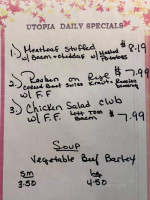 UTOPIA DAILY SPECIALS
1.) Meatloaf Stuffed $8.19
w/ Bacon + cheddar w/ Mashed Potatoes
2.) Reuben on Rye $7.99
Corned Beef Swiss Kraut + Russian Dressing
w/ F.F.
3.) Chicken Salad Club
w/ F.F. Lett Tom Bacon $7.99
Soup
Vegetable Beef Barley
sm
3.50 4.50